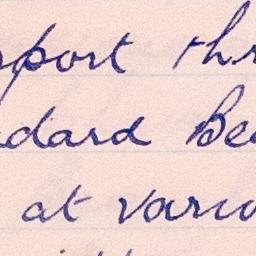 port thr
dard Be
at vario